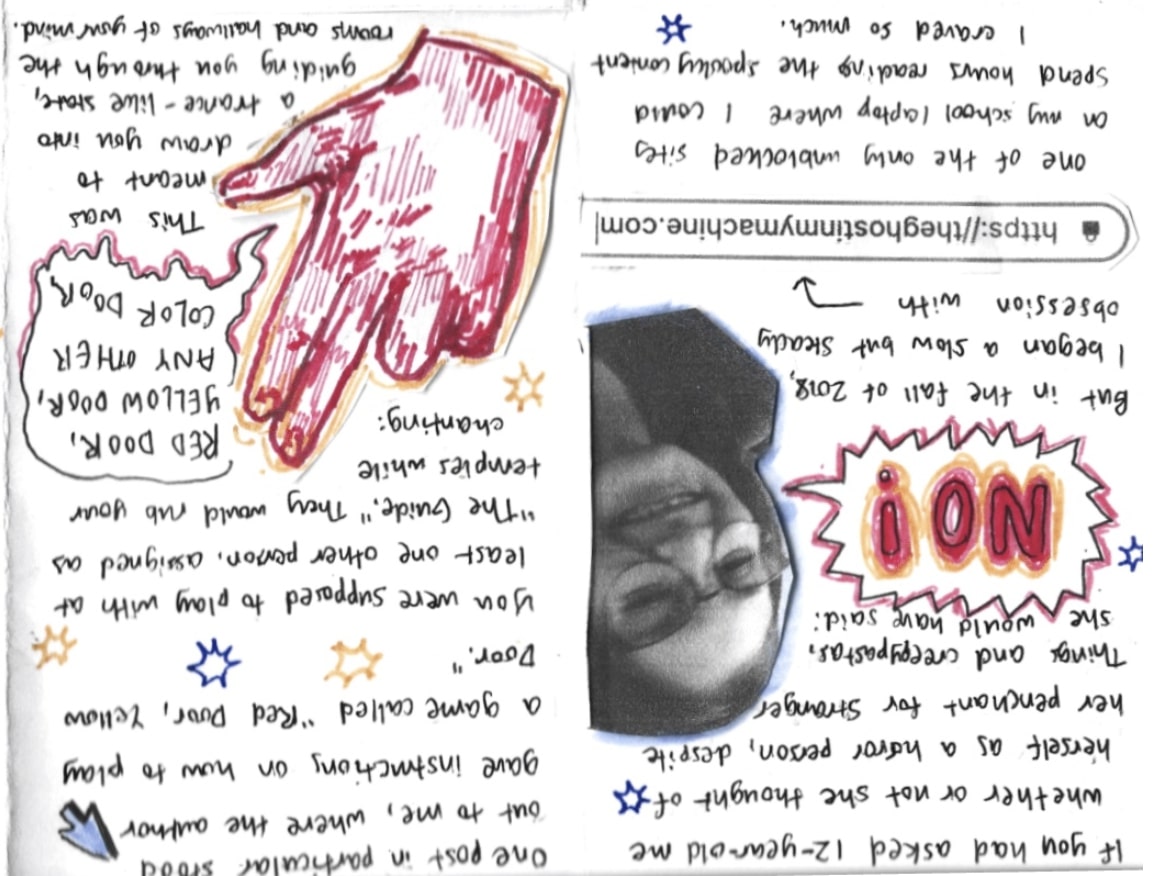 If you had asked 12-year-old me
whether or not she thought of
herself as a horror person, despite
her penchant for Stranger
Things and creepypastas,
she would have said:
NO!
But in the fall of 2018,
I began a slow but steady
obsession with
https://theghostinmymachine.com
one of the only unblocked sites
on my school laptop where I could
spend hours reading the spooky content
I craved so much.
One post in particular stood
out to me, where the author
gave instructions on how to play
a game called "Red Door, Yellow
Door."
you were supposed to play with at
least one other person, assigned as
"The Guide." They would rub your
temples while
chanting:
RED DOOR,
YELLOW DOOR,
ANY OTHER
COLOR DOOR,
This was
meant to
draw you into
a trance-like state,
guiding you through the
rooms and hallways of your mind.